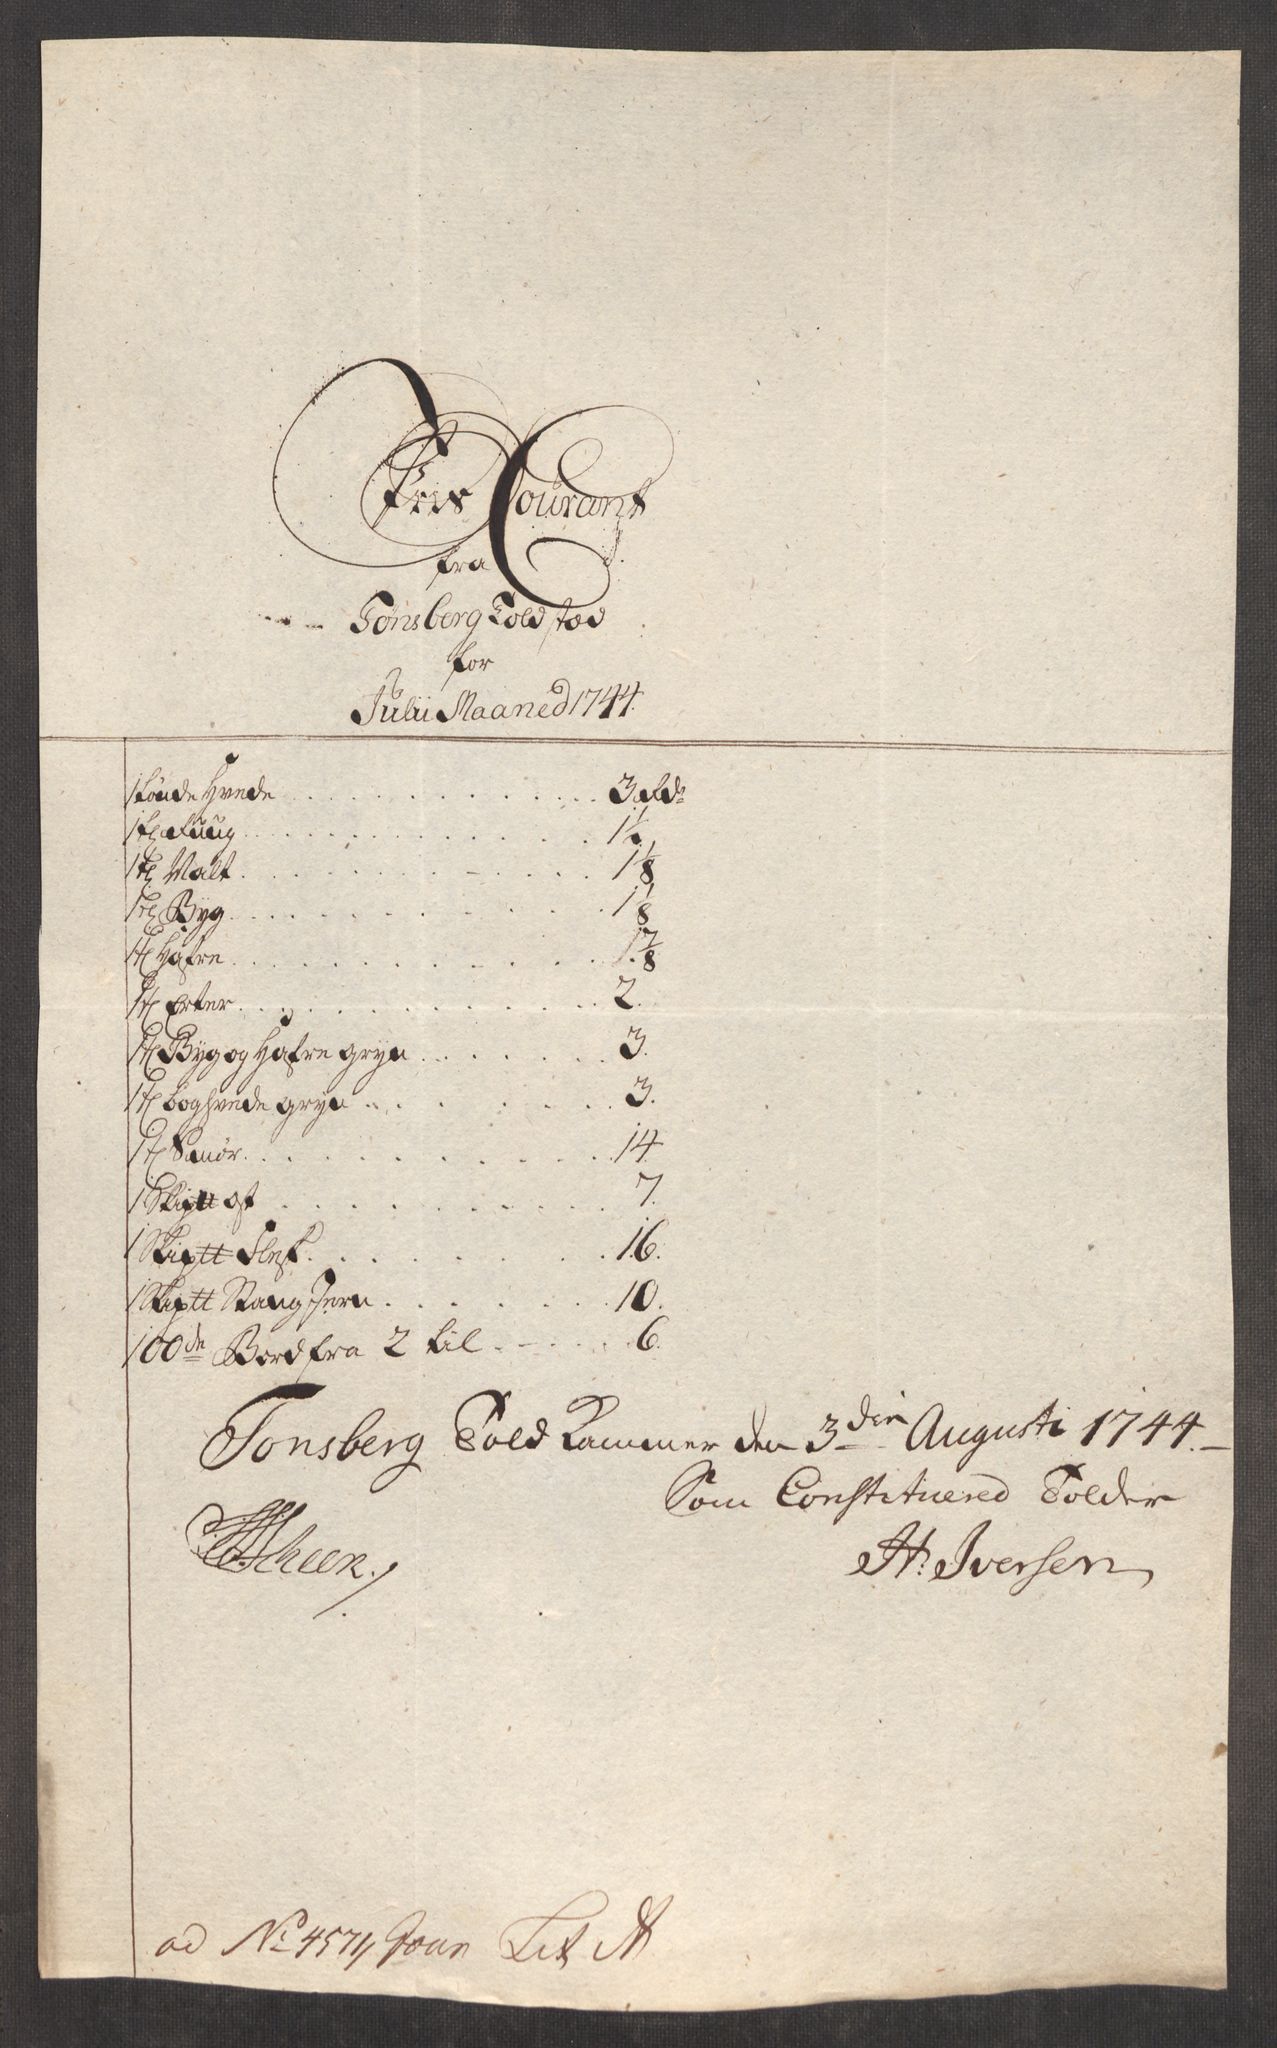 Pris Courant
fra
Tønsberg Told stæd
for
Julii Maaned 1744.
1 tønde Hvede . . . . 3 Rdr
1 tl Ruug . . . . 1¼
1 tl Malt . . . . 1⅛
1 tl Byg . . . . 1⅛
1 tl Hafre . . . . 1⅞
1 tl Erter . . . . 2.
1 tl Byg og Hafre gryn . . . . 3.
1 tl boghvede gryn . . . . 3.
1 tl Smør . . . . 14
1 Skiptt ost . . . . 7.
1 Skiptt Flesk . . . . 16.
1 Skiptt Stang Jern . . . . 10.
100de Bord fra 2 til . . . . 6.
Tonsberg Told Kammer den 3die Augusti 1744.
Som Constituered Tolder
Scheen.
H: Iversen
ad No 4574 Lit A